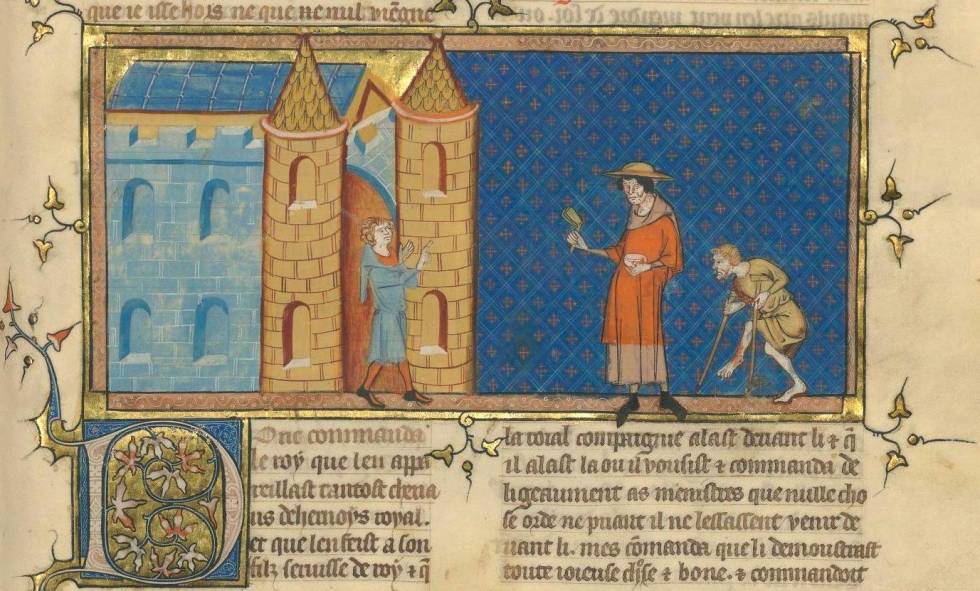 que ie isse hors ne que ne nul viegne
Donc commanda
le roy que len appa
reillast tantost cheva
us de hernoys royal.
et que len feist a son
filz servisse de roy ⁊ q̄
la roial compaignie alast devant li ⁊ q̄
il alast la ou il vousist ⁊ commanda de
ligeaument as menistres que nulle cho
se orde ne puant il ne lessassent venir de
vant li. mes cōmanda que li demoustrast
toute ioieuse chose ⁊ bone. ⁊ commandoit